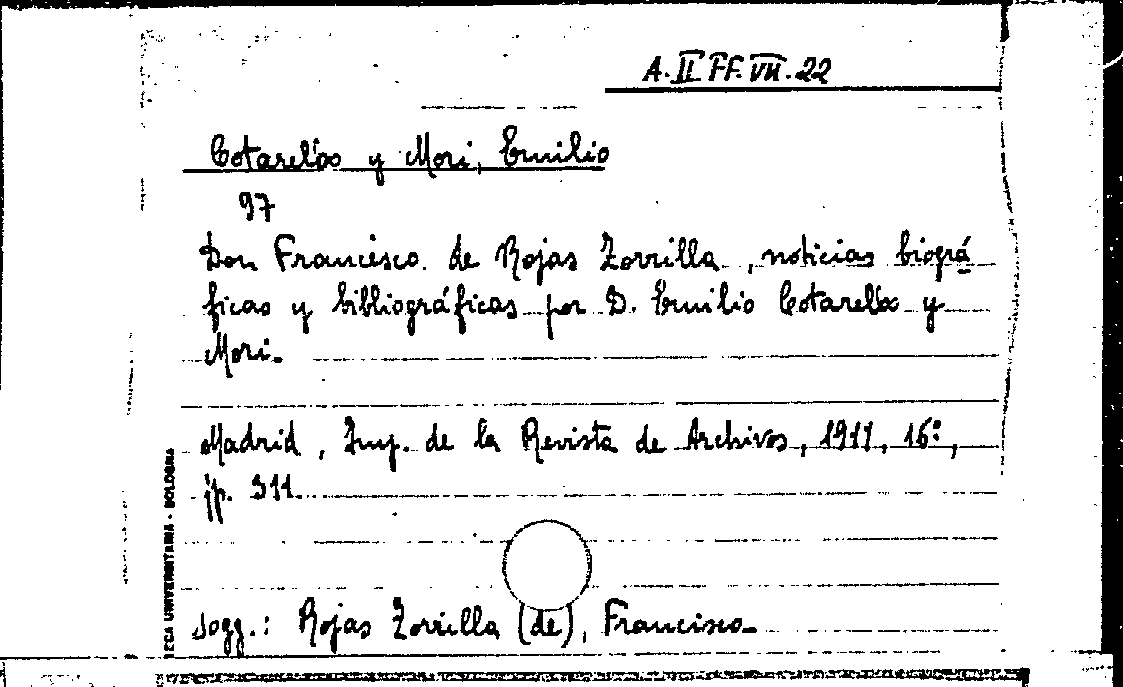 A. II FF. VII. 22
Cotarelo y Mori, Emilio
97
Don Francisco de Rojas Zorrilla, noticias biográ
ficas y bibliográficas por D. Emilio Cotarelo y
Mori.
Madrid, Imp. de la Revista de Archivos, 1911, 16º,
pp. 311.
sogg.: Rojas Zorrilla (de), Francisco.
ECA UNIVERSITARIA - BOLOGNA